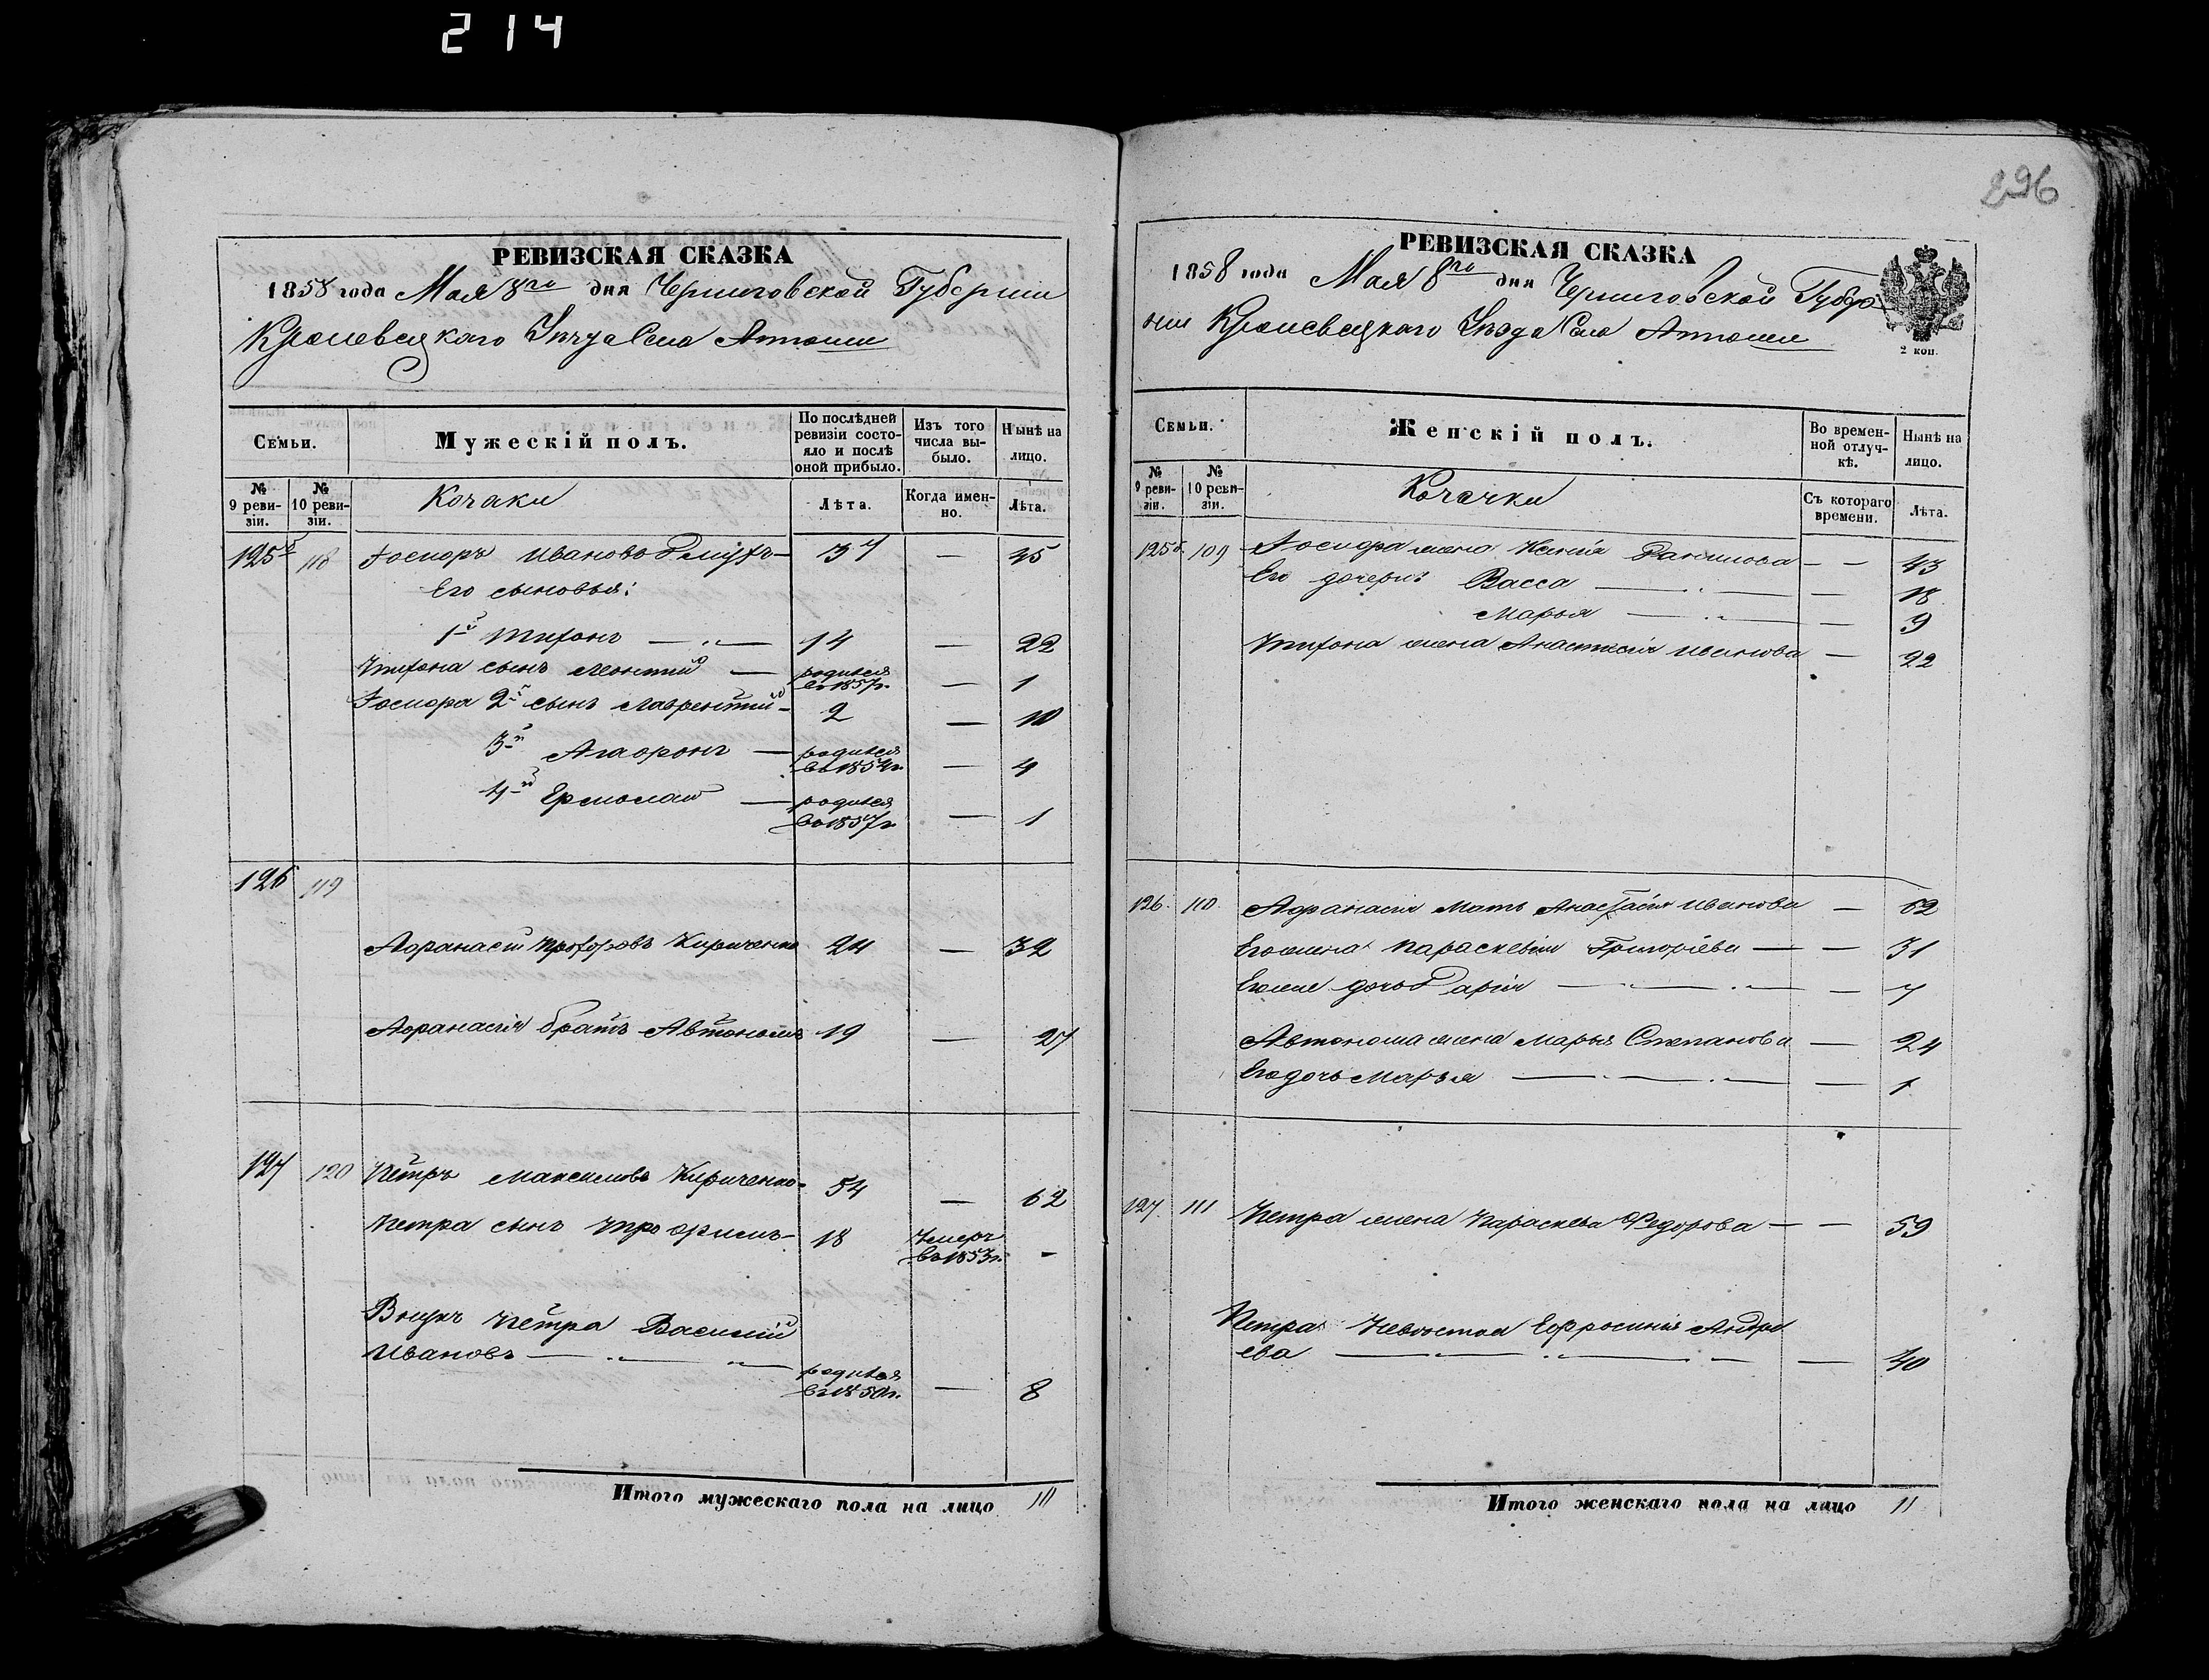 214
296
РЕВИЗСКАЯ СКАЗКА
1858 года Мая 8го дня Черниговской Губернии
Кролевецкаго Уѣзда Села
Семьи.
Мужескій полъ.
По послѣдней ревизіи состояло и послѣ оной прибыло.
Изъ того числа выбыло.
Нынѣ на лицо.
№ 9 ревизіи.
№ 10 ревизіи.
Козаки
Лѣта.
Когда именно.
Лѣта.
125 118 Иванов 37 — 45
Его сыновья:
1й Тихонъ — 14 — 22
Тихона сынъ Леонтий — родился въ 1857г. — 1
2й сынъ Лаврентий — 2 — 10
3й — родился въ 1854г. — 4
4й Ермолай — родился въ 1857г. — 1
126 119
Афанасій Кириченко 24 — 32
Афанасія братъ Автономъ 19 — 27
127 120 Петръ Максимовъ Кириченко 54 — 62
Петра сынъ Трофимъ 18 Умеръ въ 1853г. -
Внукъ Петра Василий
Ивановъ — родился въ 1850г. — 8
Итого мужескаго пола на лицо 10
РЕВИЗСКАЯ СКАЗКА
1858 года Мая 8го дня Черниговской Губер
нии Кролевецкаго Уѣзда Села
2 коп.
Семьи.
Женскій полъ.
Во временной отлучкѣ.
Нынѣ на лицо.
№ 9 ревизіи.
№ 10 ревизіи.
Козачки
Съ котораго времени.
Лѣта.
125 109 жена Ксенія Данилова — — 43
Его дочери: Васса — — 18
Марья — — 9
Тихона жена Анастасія Иванова — 22
126. 110. Афанасія Мать Анастасія Иванова — 62
Его жена Параскевія Григоріева — — 31
дочь Дарія — — 7
Автонома жена Марья Степанова — 24
Его дочь Марья — — 1
127. 111 Петра жена Параскева Федорова — — 59
Петра Невѣстка Ефросинія Андре
ева — — 40
Итого женскаго пола на лицо 11